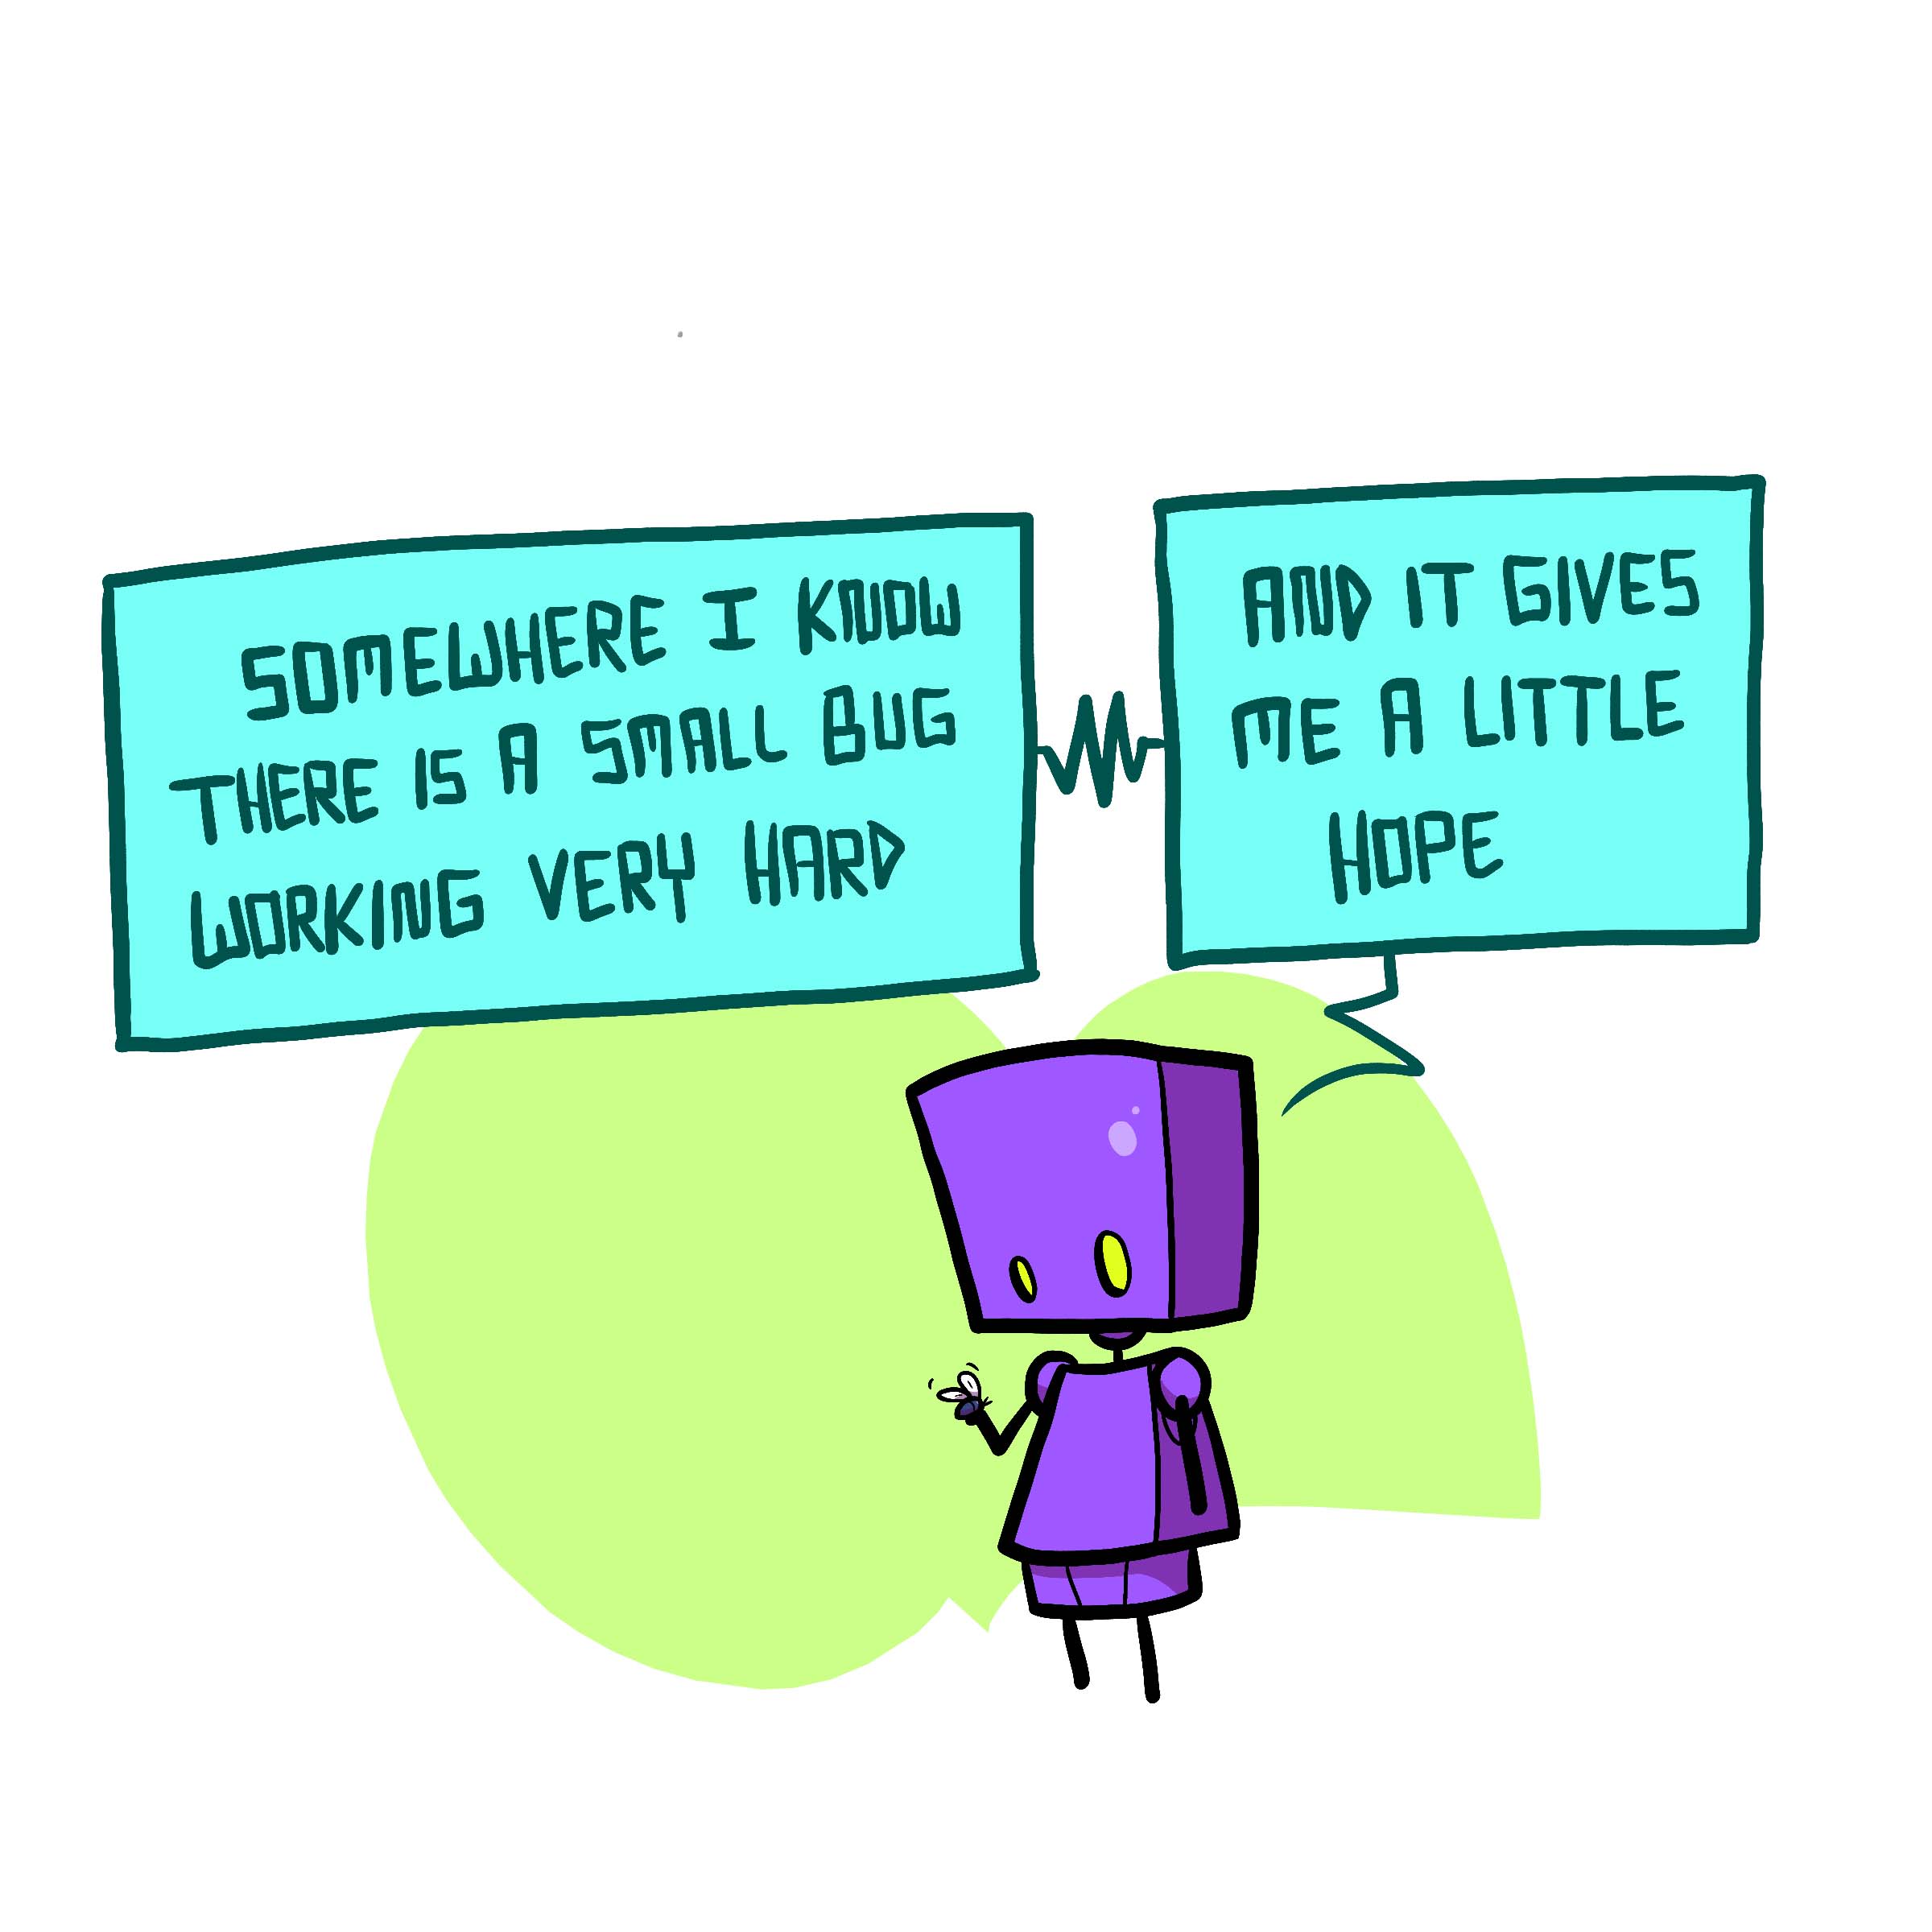 SOMEWHERE I KNOW
THERE IS A SMALL BUG
WORKING VERY HARD
AND IT GIVES
ME A LITTLE
HOPE